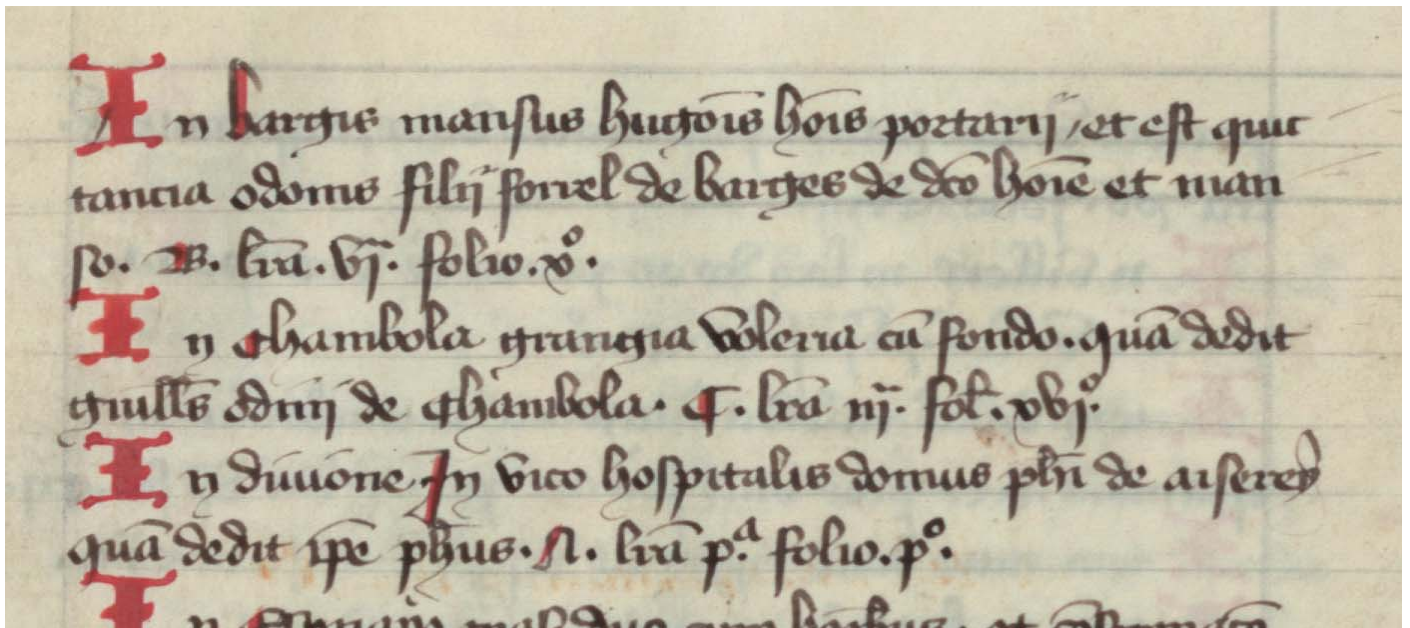 In bargis mansus hugoīs hoīs portarij / et est quit
tancia odonis filij sorrel de barges de dc̄o hoīe et man
so. B. lr̄a. vj. folio. xº.
In Chambola grangia voleria cū fondo. quā dedit
guill̄s odini de Chambola. C. lr̄a iij. fol̄. xvjº.
In diuione In vico hospitalis domus ph̄i de aiserey
quā dedit ip̄e ph̄us. A. lr̄a p.ª folio. pº.